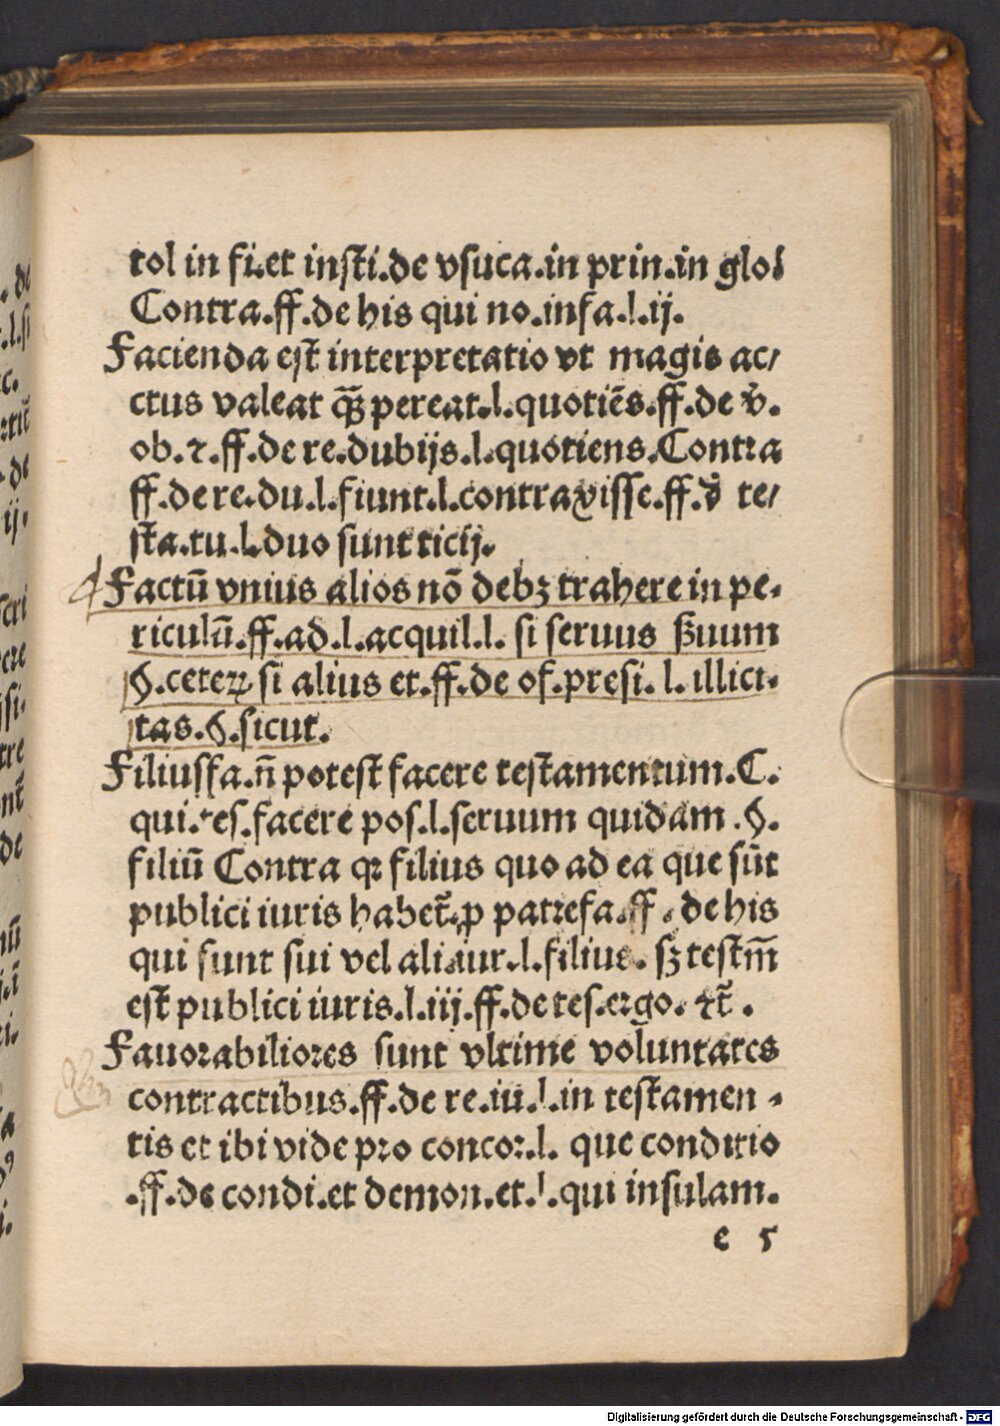 tol in fi.et insti.de vsuca.in prin.in glos
Contra.ff.de his qui no.infa.l.ij.
Facienda est interpretatio vt magis ac/
ctus valeat qᷓ pereat.l.quotiēs.ff.de v̄.
ob.⁊.ff.de re.dubijs.l.quotiens.Contra
ff.de re.du.l.fiunt.l.contraxisse.ff.d̄ te/
sta.tu.l.duo sunt ticij.
Factū vnius alios nō debꝫ trahere in pe-
riculū.ff.ad.l.acquil.l. si seruus ẜuum
§.ceteꝝ si alius et.ff.de of.presi.l.illici-
tas.§.sicut.
Filiusfa.n̄ potest facere testamentum.C.
qui.tes.facere pos.l.seruum quidam.§.
filiū Contra qꝛ filius quo ad ea que sūt
publici iuris habet̄.ꝓ patrefa.ff.de his
qui sunt sui vel ali.iur.l.filius.sꝫ testm̄
est publici iuris.l.iij.ff.de tes.ergo.⁊t̄.
Fauorabiliores sunt vltime voluntates
contractibus.ff.de re.iu.l.in testamen-
tis et ibi vide pro concor.l. que conditio
.ff.de condi.et demon.et.l.qui insulam.
e 5
Digitalisierung gefördert durch die Deutsche Forschungsgemeinschaft - DFG